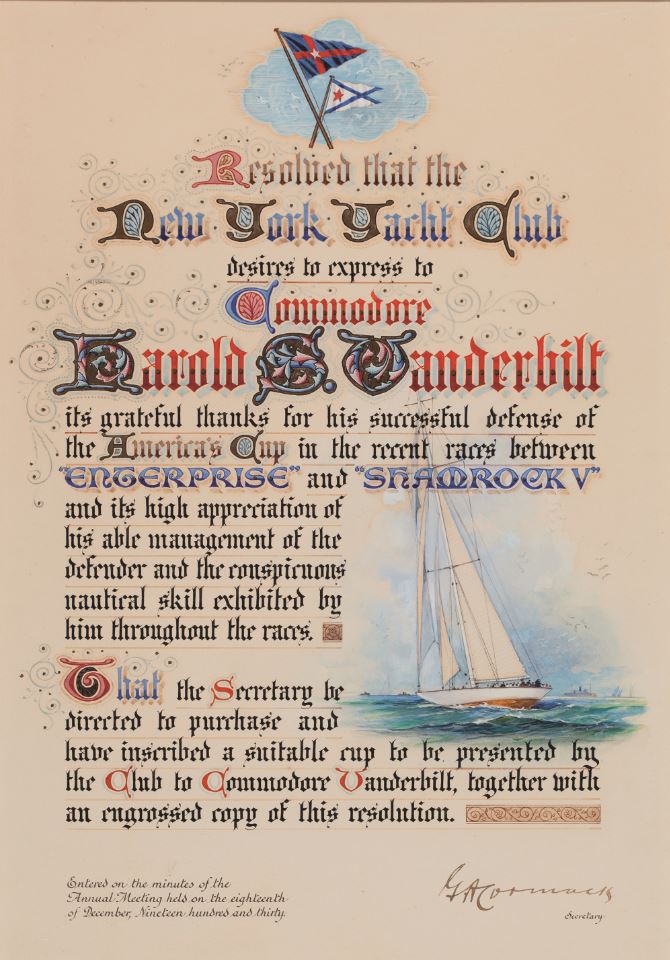 Resolved that the
New York Yacht Club
desires to express to
Commodore
Harold S. Vanderbilt
its grateful thanks for his successful defense of
the America's Cup in the recent races between
"ENTERPRISE" and "SHAMROCK V"
and its high appreciation of
his able management of the
defender and the conspicuous
nautical skill exhibited by
him throughout the races.
That the Secretary be
directed to purchase and
have inscribed a suitable cup to be presented by
the Club to Commodore Vanderbilt, together with
an engrossed copy of this resolution.
Entered on the minutes of the
Annual Meeting held on the eighteenth
of December, Nineteen hundred and thirty.
G A Cormack
Secretary